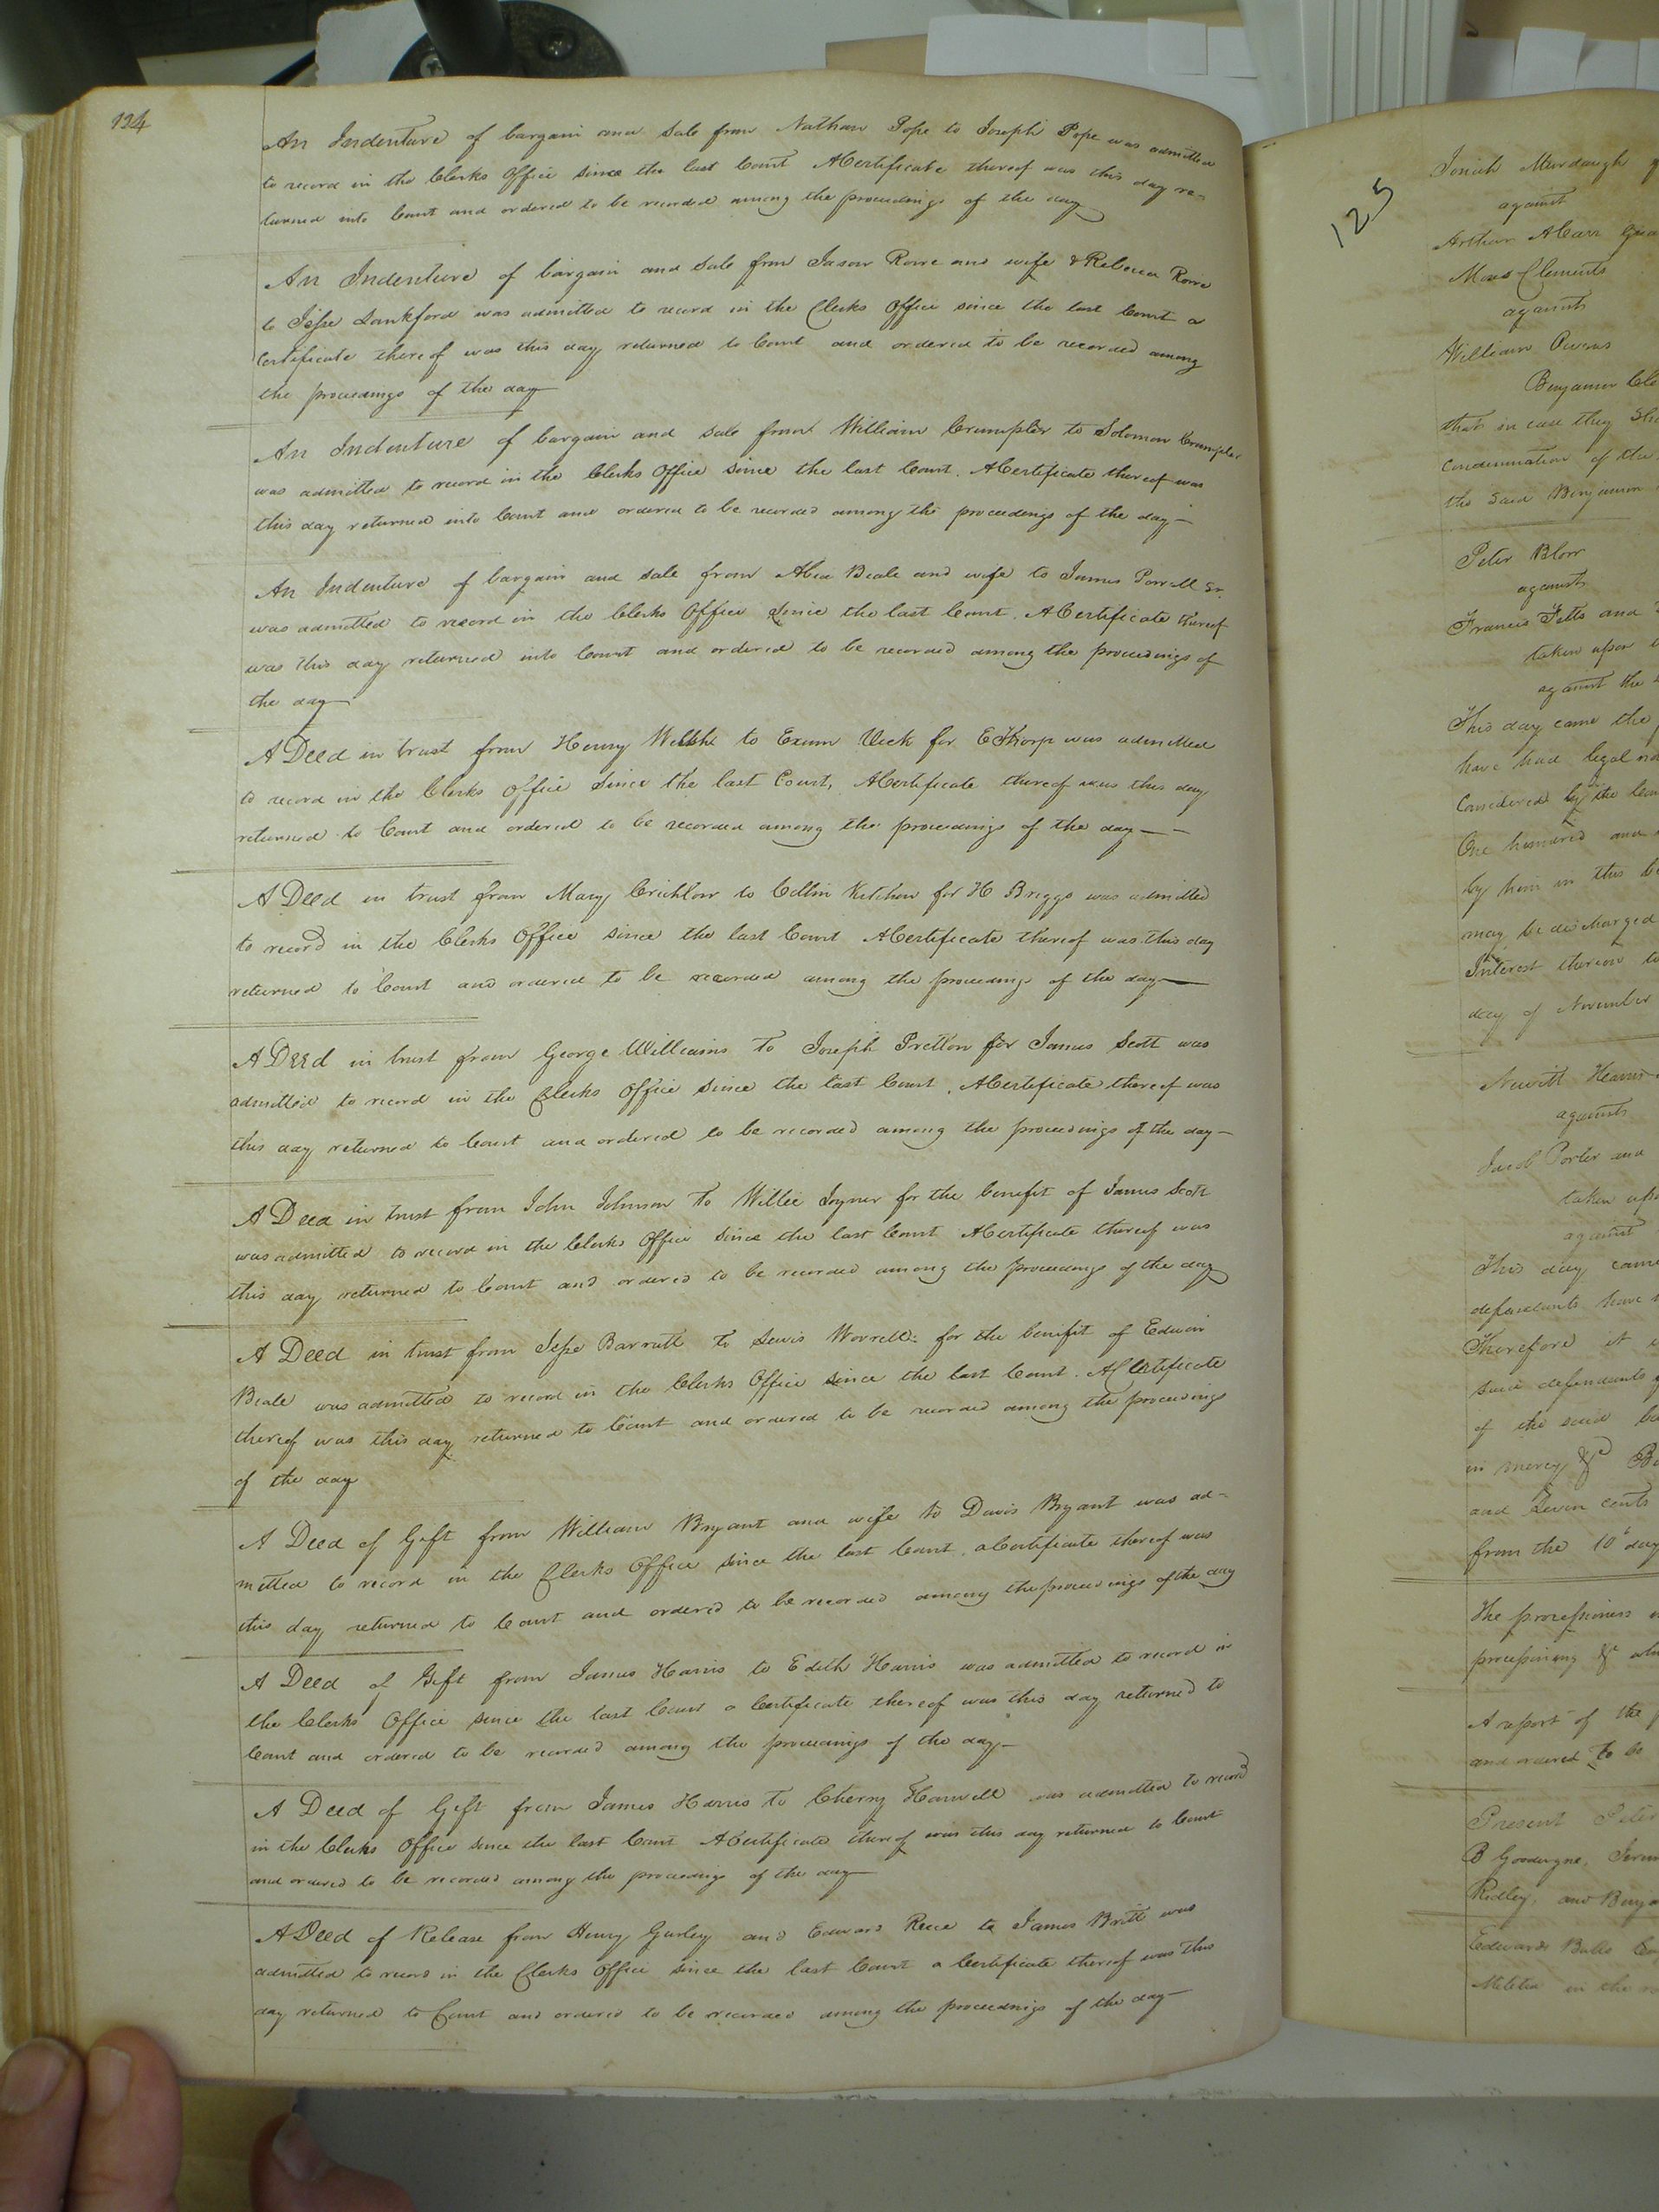 124
An Indenture of bargain and sale from Nathan Pope to Joseph Pope was admitted
to record in the Clerks Office since the last Court A Certificate thereof was this day re=
turned into Court and ordered to be recorded among the proceedings of the day
An Indenture of bargain and sale from Jason Rowe and wife & Rebecca Rowe
to Jesse Lankford was admitted to record in the Clerks Office since the last Court a
Certificate thereof was this day returned to Court and ordered to be recorded among
the proceedings of the day
An Indenture of bargain and sale from William Crumpler to Solomon Crumpler
was admitted to record in the Clerks Office since the last Court. A Certificate thereof was
this day returned into Court and ordered to be recorded among the proceedings of the day—
An Indenture of bargain and sale from Beale and wife to James Sr.
was admitted to record in the Clerks Office since the last Court. A Certificate thereof
was this day returned into Court and ordered to be recorded among the proceedings of
the day
A Deed in trust from Henry to Exum Vick for E Thorp was admitted
to record in the Clerks Office since the last Court, A Certificate thereof was this day
returned to Court and ordered to be recorded among the proceedings of the day — –
A Deed in trust from Mary Crichlow to Collin Kitchen for H Briggs was admitted
to record in the Clerks Office since the last Court A Certificate thereof was this day
returned to Court and ordered to be recorded among the proceedings of the day—
A Deed in trust from George Williams to Joseph Pretlow for James Scott was
admitted to record in the Clerks Office since the last Court. A Certificate thereof was
this day returned to Court and ordered to be recorded among the proceedings of the day—
A Deed in trust from John Johnson To Willie Joyner for the benefit of James Scott
was admitted to record in the Clerks Office since the last Court A Certificate thereof was
this day returned to Court and ordered to be recorded among the proceedings of the day
A Deed in trust from Jesse Barrett to Lewis Worrell for the benifit of Edwin
Beale was admitted to record in the Clerks Office since the last Court. A Certificate
thereof was this day returned to Court and ordered to be recorded among the proceedings
of the day
A Deed of Gift from William Bryant and wife to Davis Bryant was ad=
mitted to record in the Clerks Office since the last Court. a Certificate thereof was
this day returned to Court and ordered to be recorded among the proceedings of the day
A Deed of Gift from James Harris to Edith Harris was admitted to record in
the Clerks Office since the last Court a Certificate thereof was this day returned to
Court and ordered to be recorded among the proceedings of the day—
A Deed of Gift from James Harris to Cherry Harwell was admitted to record
in the Clerks Office since the last Court A Certificate thereof was this day returned to Court
and ordered to be recorded among the proceedings of the day
A Deed of Release from Henry Gurley and Edward Reece to James Britt was
admitted to record in the Clerks Office since the last Court a Certificate thereof was this
day returned to Court and ordered to be recorded among the proceedings of the day—
125
Josiah Murdaugh
against
Arthur
Moses Clements
against
William Owens
Benjamin
that in case they
Condemnation of the
the said Benjamin
Peter Blow
against
Francis Felts and
taken upon
against the
This day came the
have had legal
Considered by the
One hundred and
by him in this
may be discharged
Interest thereon to
day of November
Newitt
against
Jacob Porter and
taken upon
against
This day came
defendants have
Therefore it
said defendants
of the said
in mercy &c
and seven cents
from the 10th day
The processioners
processioning &c
A report of the
and ordered to be
Present Peter
B Goodwyne,
Ridley, and
Edwards
Militia in the